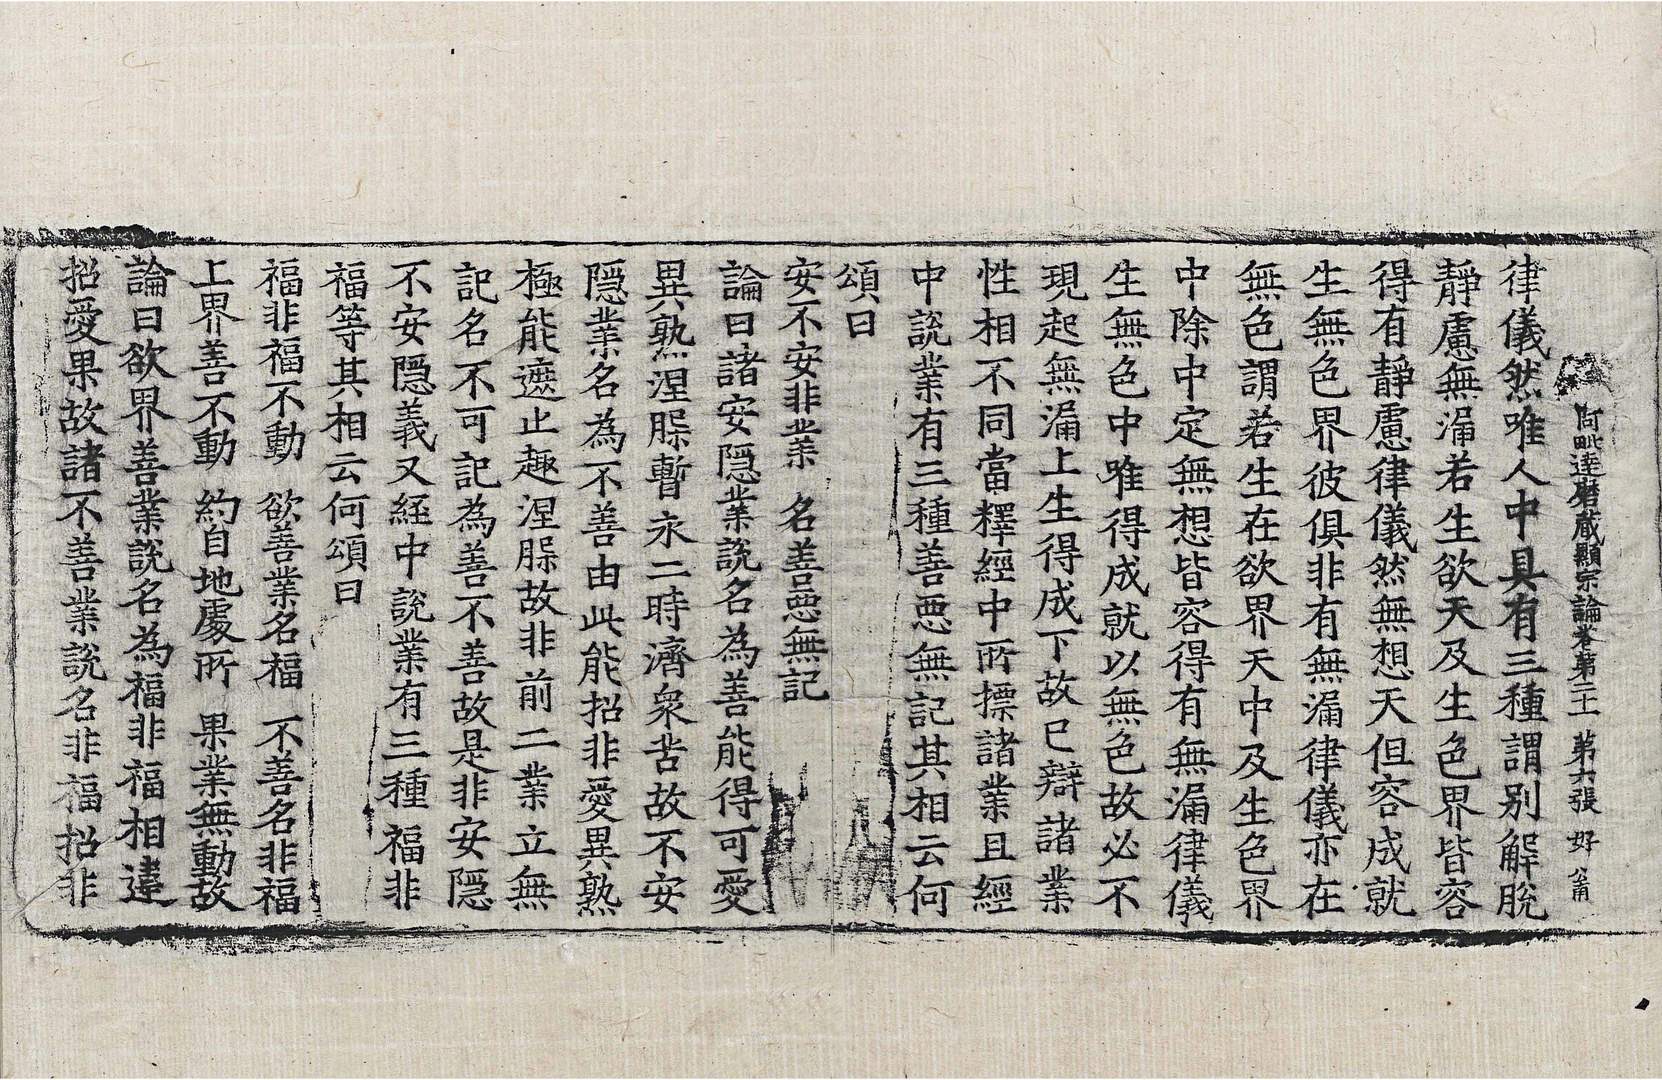 阿毗達磨藏顯宗論卷第二十 第六張 好
律儀然唯人中具有三種謂別解脫
靜慮無漏若生欲天及生色界皆容
得有靜慮律儀然無想天但容成就
生無色界彼俱非有無漏律儀亦在
無色謂若生在欲界天中及生色界
中除中定無想皆容得有無漏律儀
生無色中唯得成就以無色故必不
現起無漏上生得成下故已辯諸業
性相不同當釋經中所摽諸業且經
中說業有三種善惡無記其相云何
頌曰
安不安非業 名善惡無記
論曰諸安隱業說名為善能得可愛
異熟涅槃暫永二時濟衆苦故不安
隱業名為不善由此能招非愛異熟
極能遮止趣涅槃故非前二業立無
記名不可記為善不善故是非安隱
不安隱義又經中說業有三種福非
福等其相云何頌曰
福非福不動 欲善業名福 不善名非福
上界善不動 約自地處所 果業無動故
論曰欲界善業說名為福非福相違
招愛果故諸不善業說名非福招非